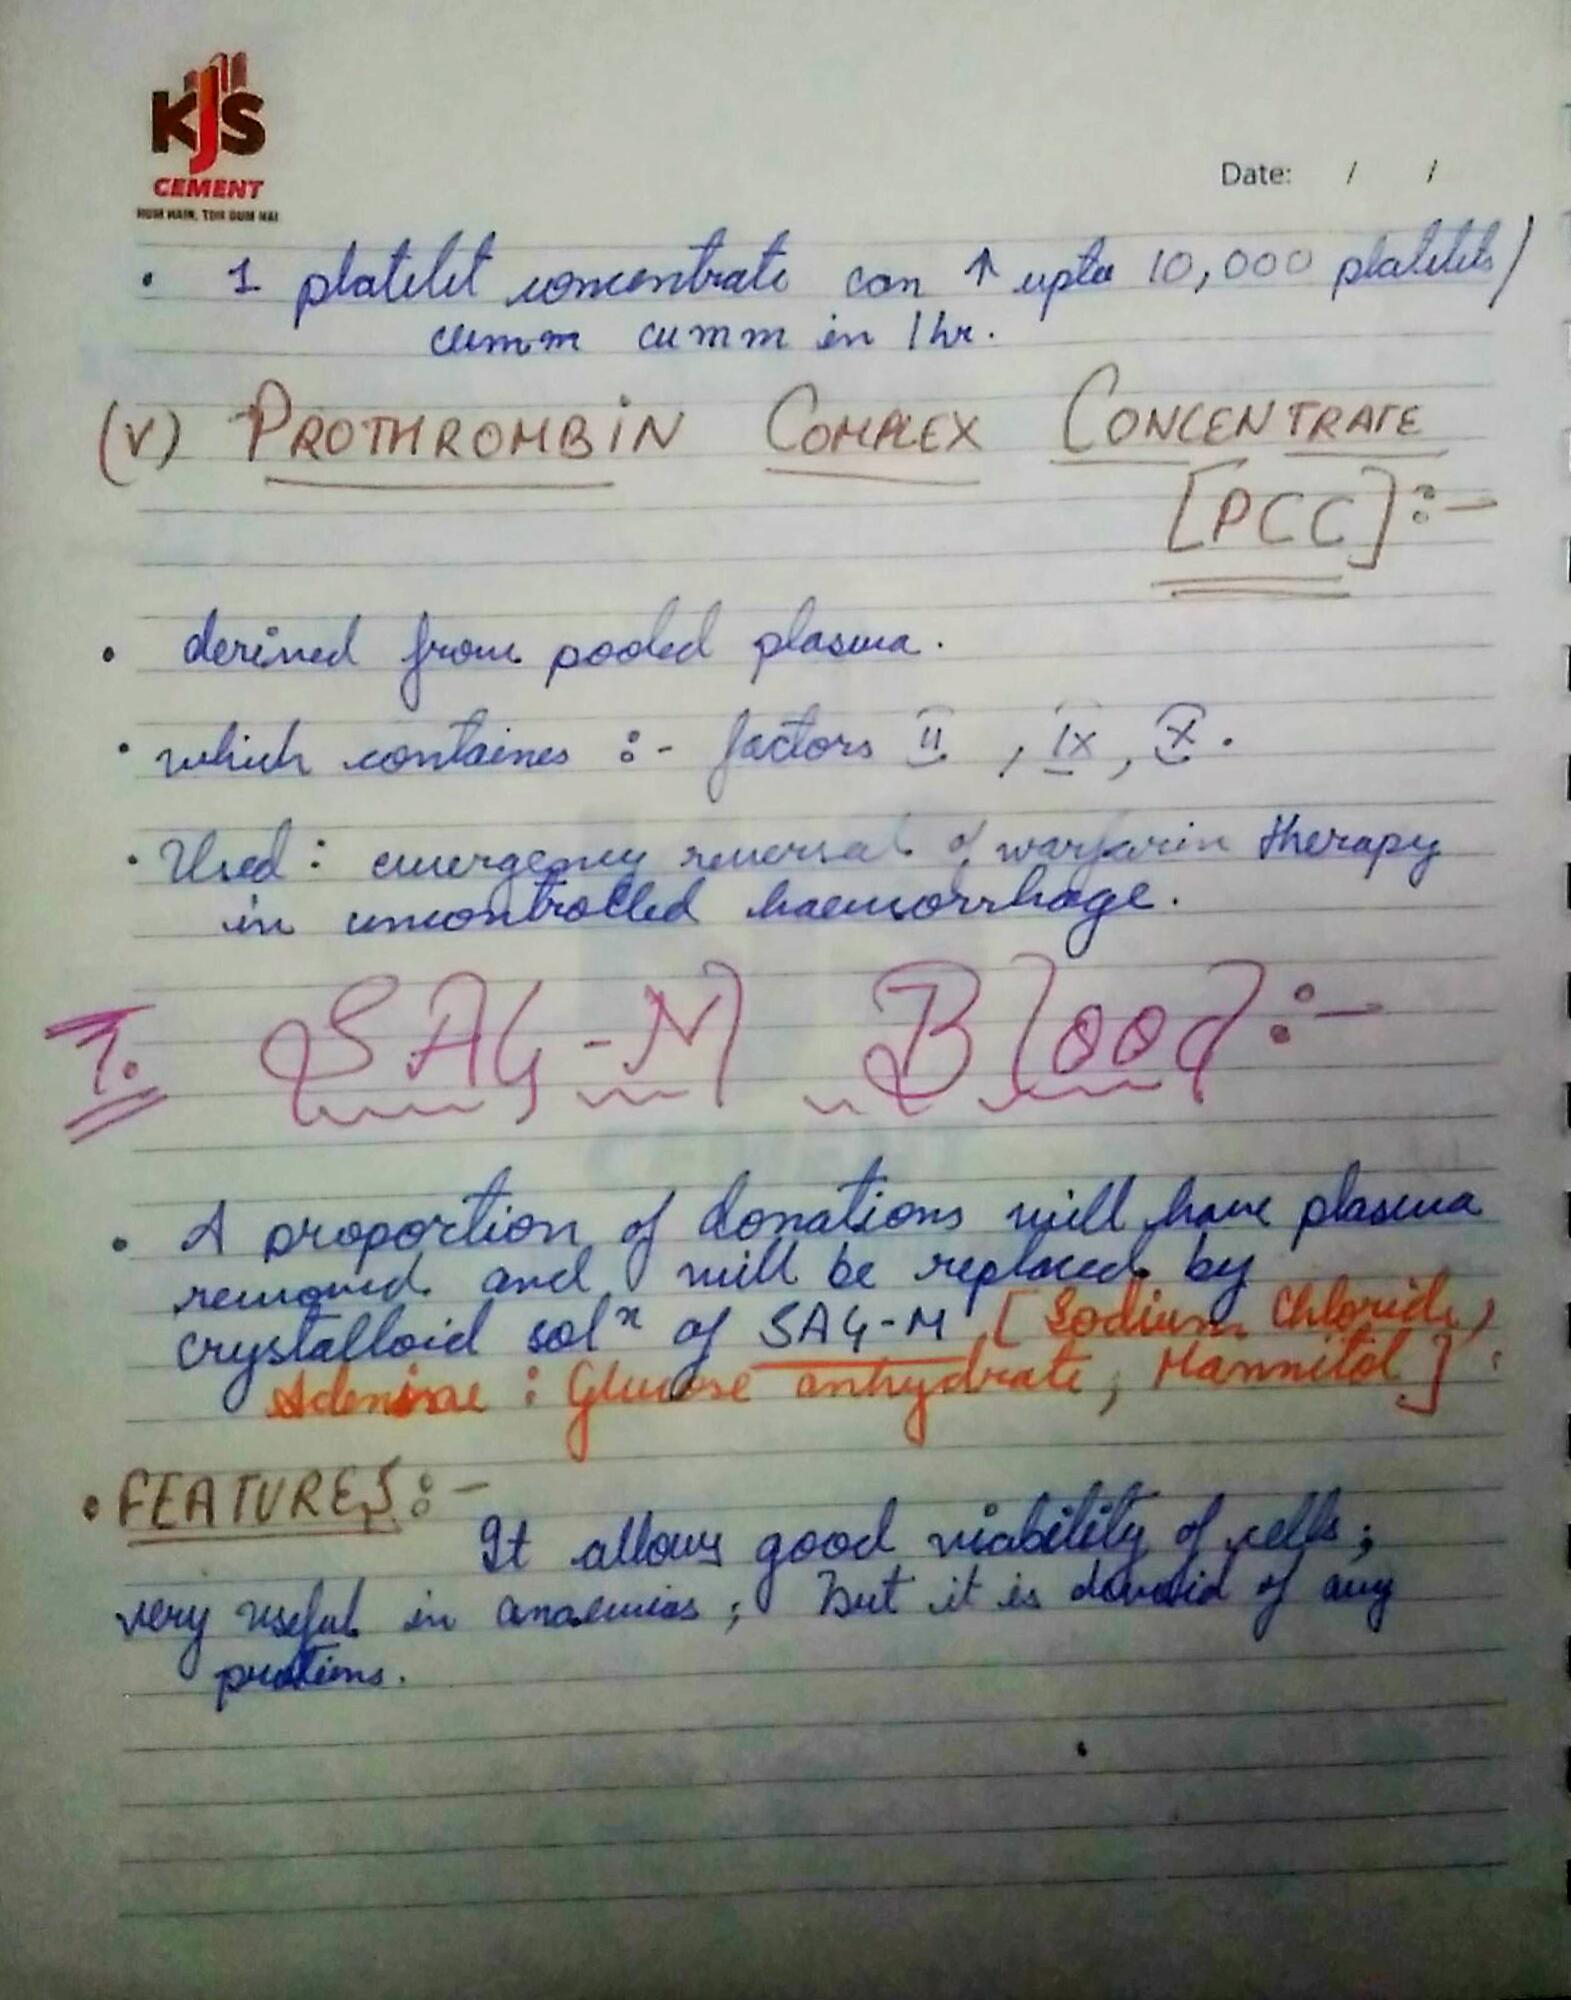 KJS
CEMENT
HUM HAIN, TOH DUM HAI
Date: / /
• 1 platelet concentrate can ↑ upto 10,000 platelets/
cumm cumm in 1 hr.
(V) PROTHROMBIN COMPLEX CONCENTRATE
[PCC]:-
• derived from pooled plasma.
• which containes :- factors II, IX, X.
• Used : emergency reversal of warfarin therapy
in uncontrolled haemorrhage.
7. SAG-M Blood:-
• A proportion of donations will have plasma
removed and will be replaced by
crystalloid solⁿ of SAG-M [Sodium Chloride,
Adenine : Glucose anhydrate, Mannitol]:
• FEATURES:-
It allows good viability of cells;
very useful in anaemias; But it is devoid of any
protiens.